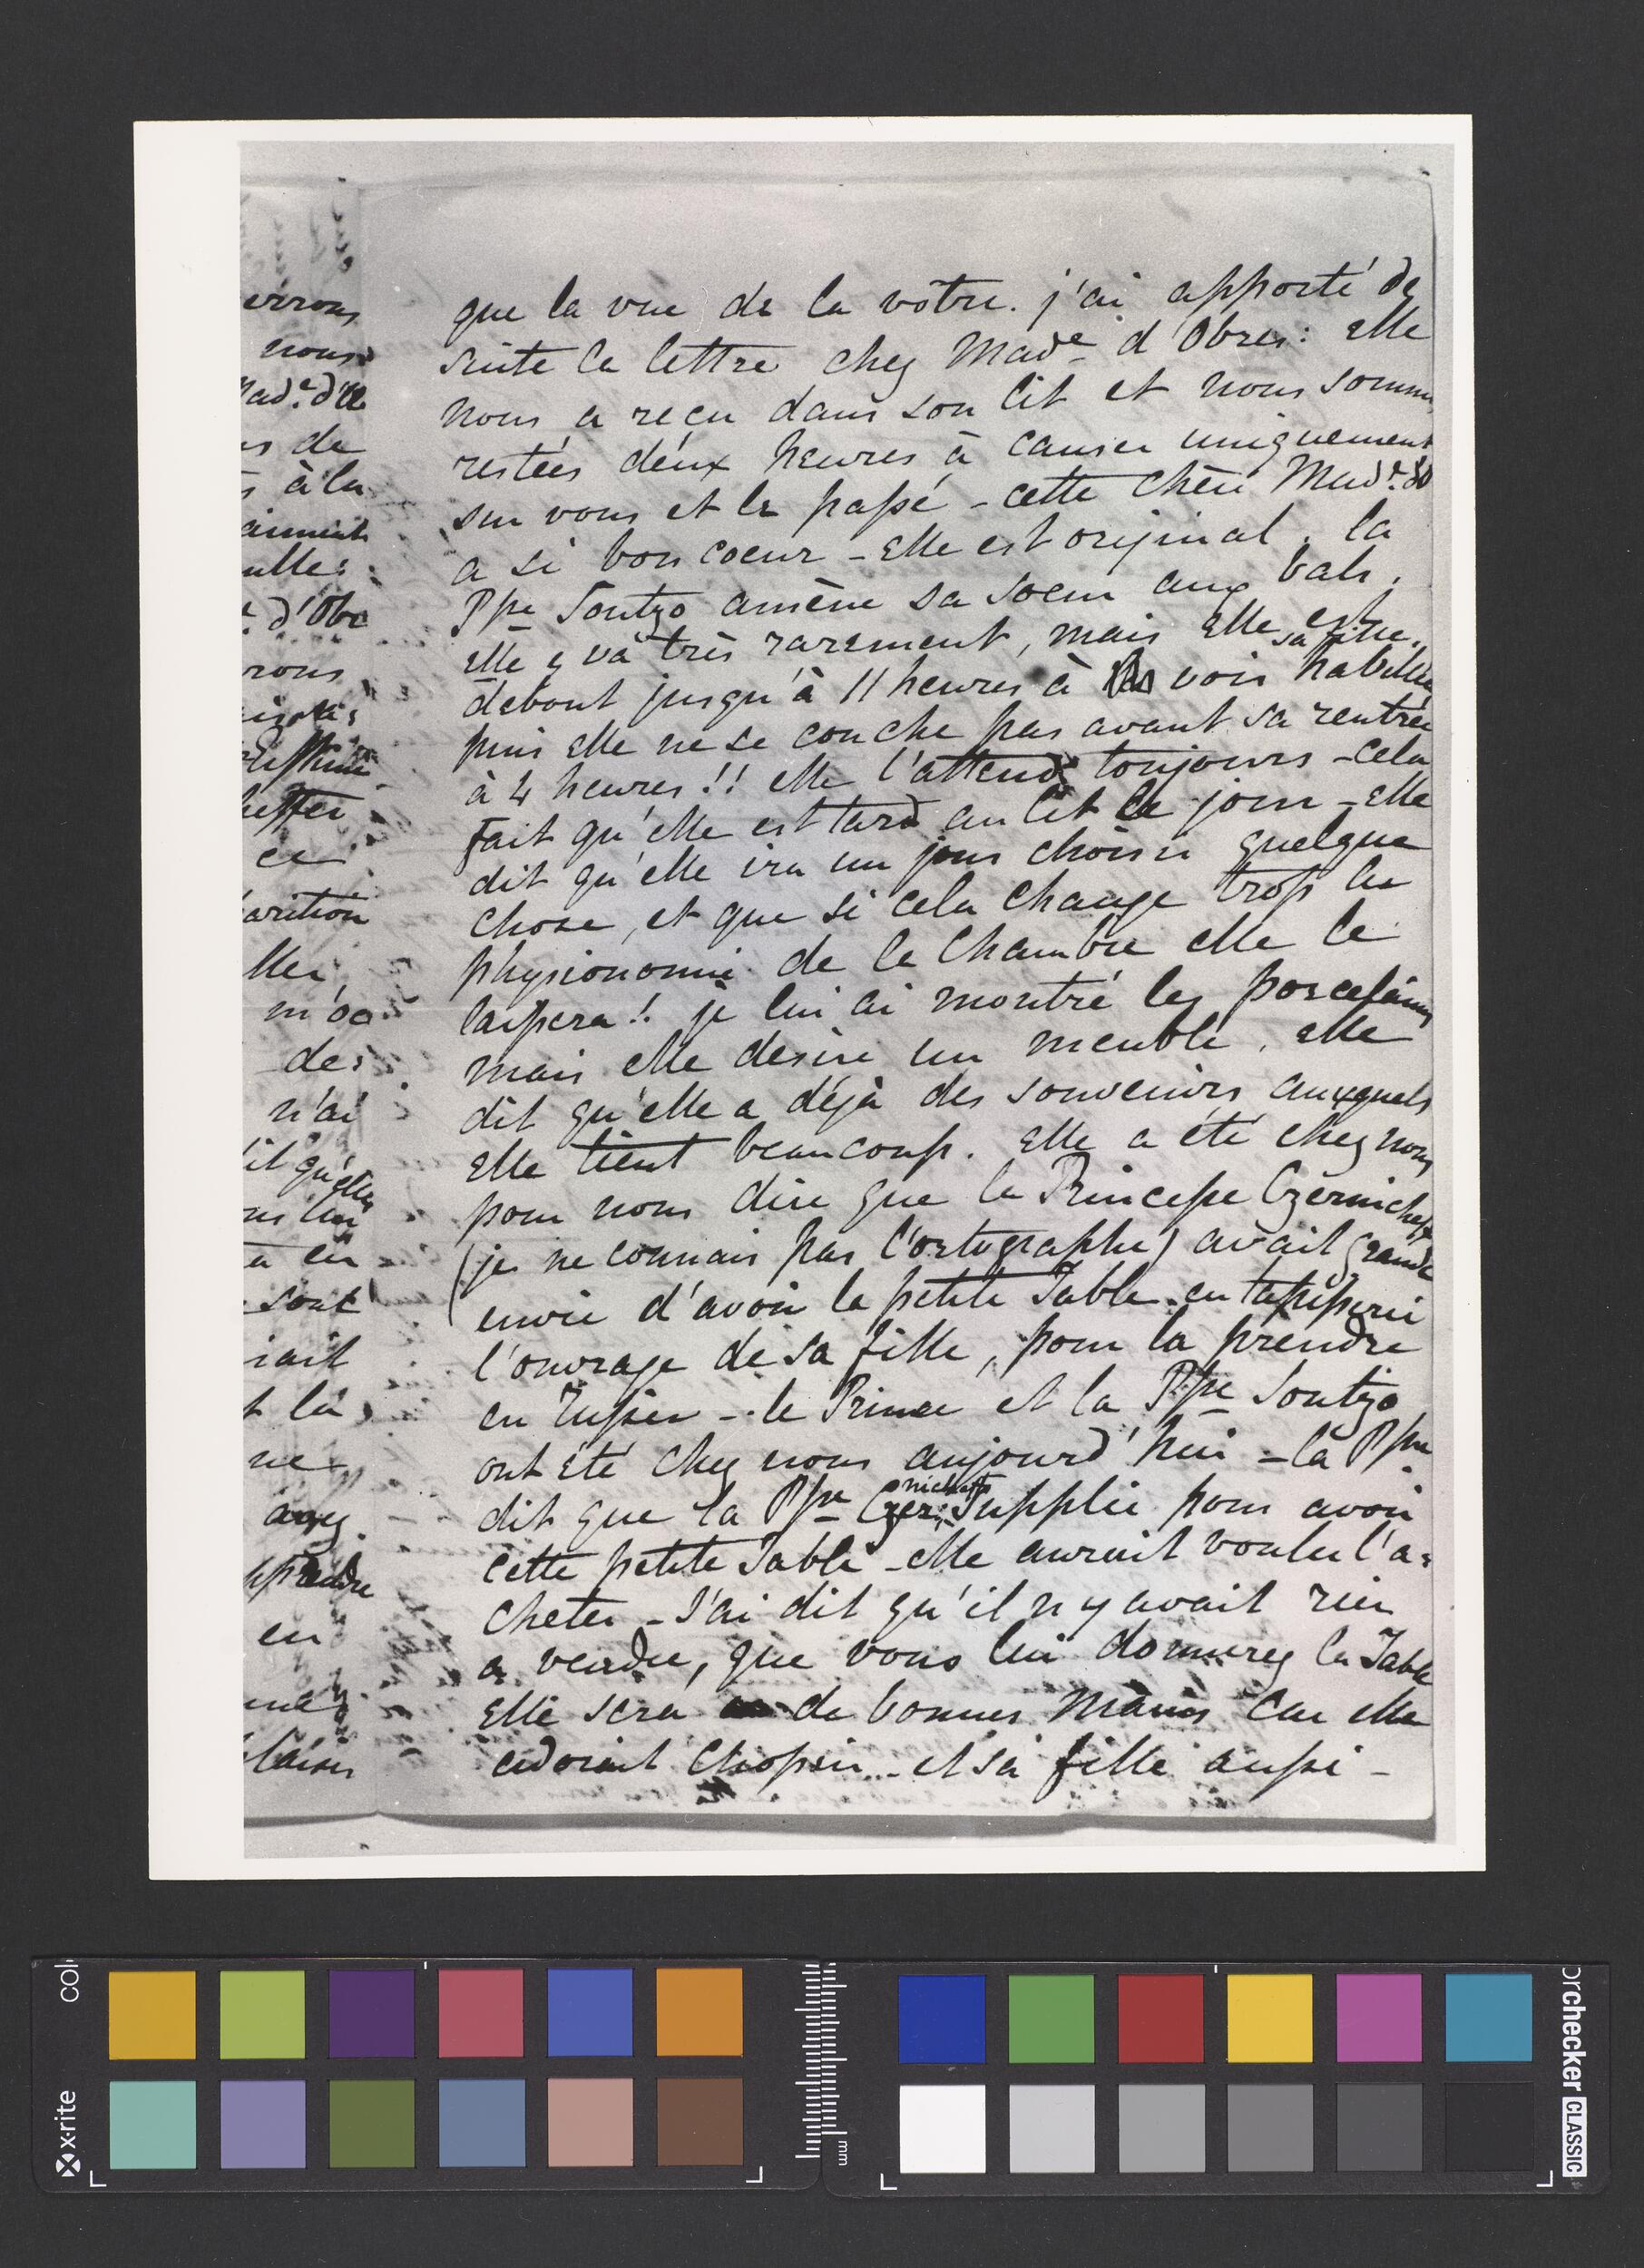 errons
nous
Made. d'O
ns de
à la
aiment
ulle
d'Obr
rons
ce
arition
ller
m'oc
des
n'ai
il qu'elle
a en
sont
rait
t là
ne
avez
pprendre
en
que la vue de la vôtre. j'ai apporté de
suite la lettre chez Made d'Obres: elle
nous a reçu dans son lit et nous somm
restées deux heures à causer uniquement
sur vous et le passé - cette chère Made. d'O
a si bon coeur - Elle est original. la
Psse Soutzo amène sa soeur aux bals.
elle y va très rarement, mais Elle est
debout jusqu'à 11 heures à voir sa fille habillée
puis elle ne se couche pas avant sa rentrée
à 4 heures!! elle l'attend toujours - cela
fait qu'elle est tard au lit le jour - Elle
dit qu'elle ira un jour choisir quelque
chose, et que si cela change trop la
physionomie de la Chambre elle le
laissera! je lui ai montré les porcelaines
mais elle desire un meuble. elle
dit qu'elle a déjà des souvenirs auxquels
elle tient beaucoup. Elle a été chez nous
pour nous dire que la Princesse Czernicheff
(je ne connais pas l'ortographe) avait grande
envie d'avoir la petite Table en tapisserie
l'ouvrage de sa fille, pour la prendre
en Russie - le Prince et la Psse Soutzo
ont été chez nous aujourd'hui - la Psse
dit que la Psse Czernicheff supplie pour avoir
cette petite Table - elle aurait voulu l'a=
cheter - J'ai dit qu'il n'y avait rien
a vendre, que vous lui donnerez la Table
Elle sera de bonnes mains car elle
adorait Chopin - et sa fille aussi -
x-rite
col
mm
orchecker CLASSIC